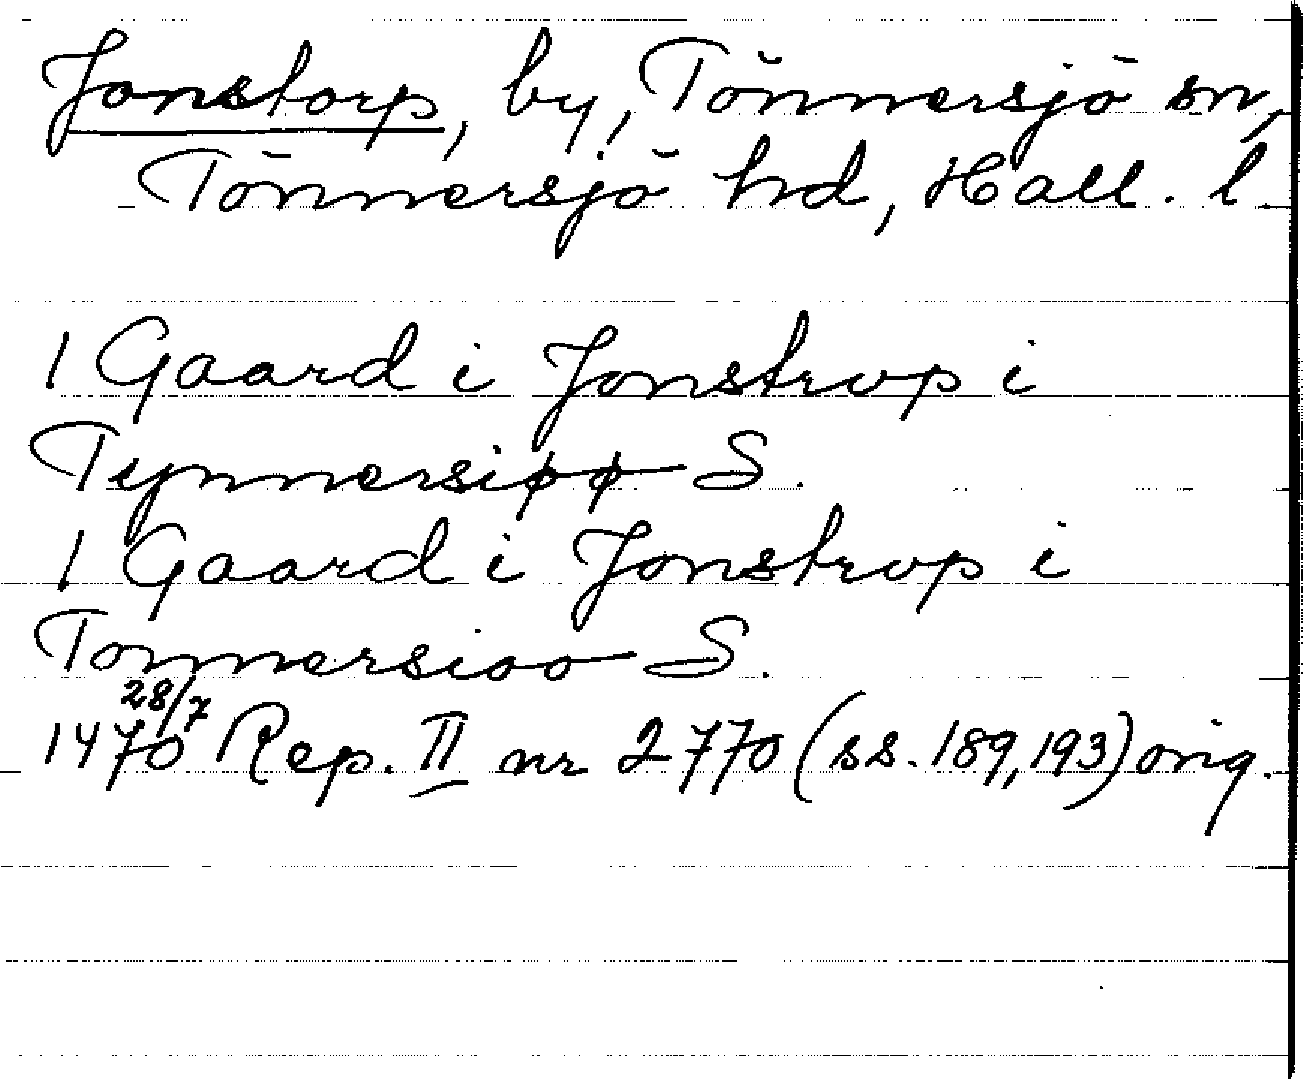 Jonstorp, by, Tönnersjö sn,
Tönnersjö hd, Hall. l.
1 Gaard i Jonstrop i
Tynnersiøø S.
1 Gaard i Jonstrop i
Tonnersioo S.
1470 28/7 Rep. II nr 2770 (ss. 189, 193) orig.